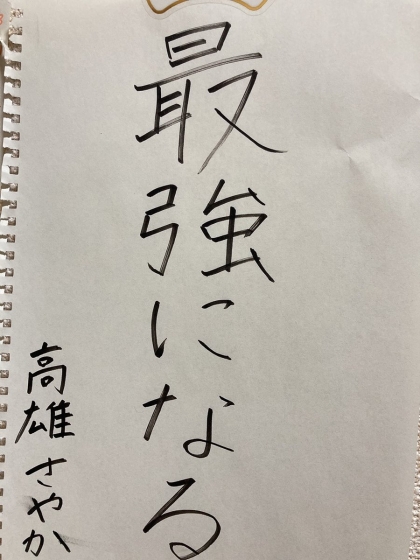 最強になる
高雄さやか